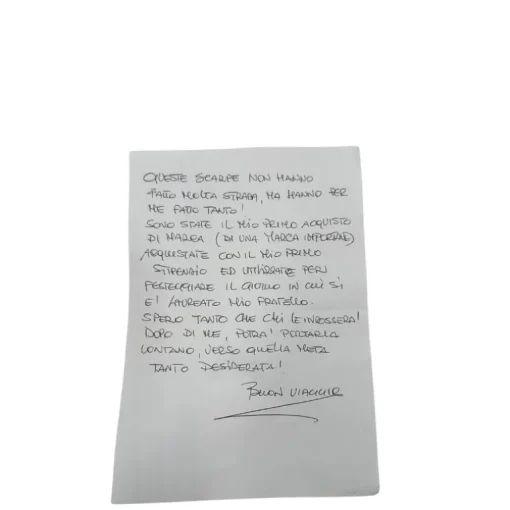 QUESTE SCARPE NON HANNO
FATTO MOLTA STRADA, MA HANNO PER
ME FATTO TANTO!
SONO STATE IL MIO PRIMO ACQUISTO
DI MARCA (DI UNA MARCA IMPORTANTE)
ACQUISTATE CON IL MIO PRIMO
STIPENDIO ED UTILIZZATE PER
FESTEGGIARE IL GIORNO IN CUI SI
E' LAUREATO MIO FRATELLO.
SPERO TANTO CHE CHI LE INDOSSERA'
DOPO DI ME, POTRA' PORTARLE
LONTANO, VERSO QUELLA META
TANTO DESIDERATA!
BUON VIAGGIO